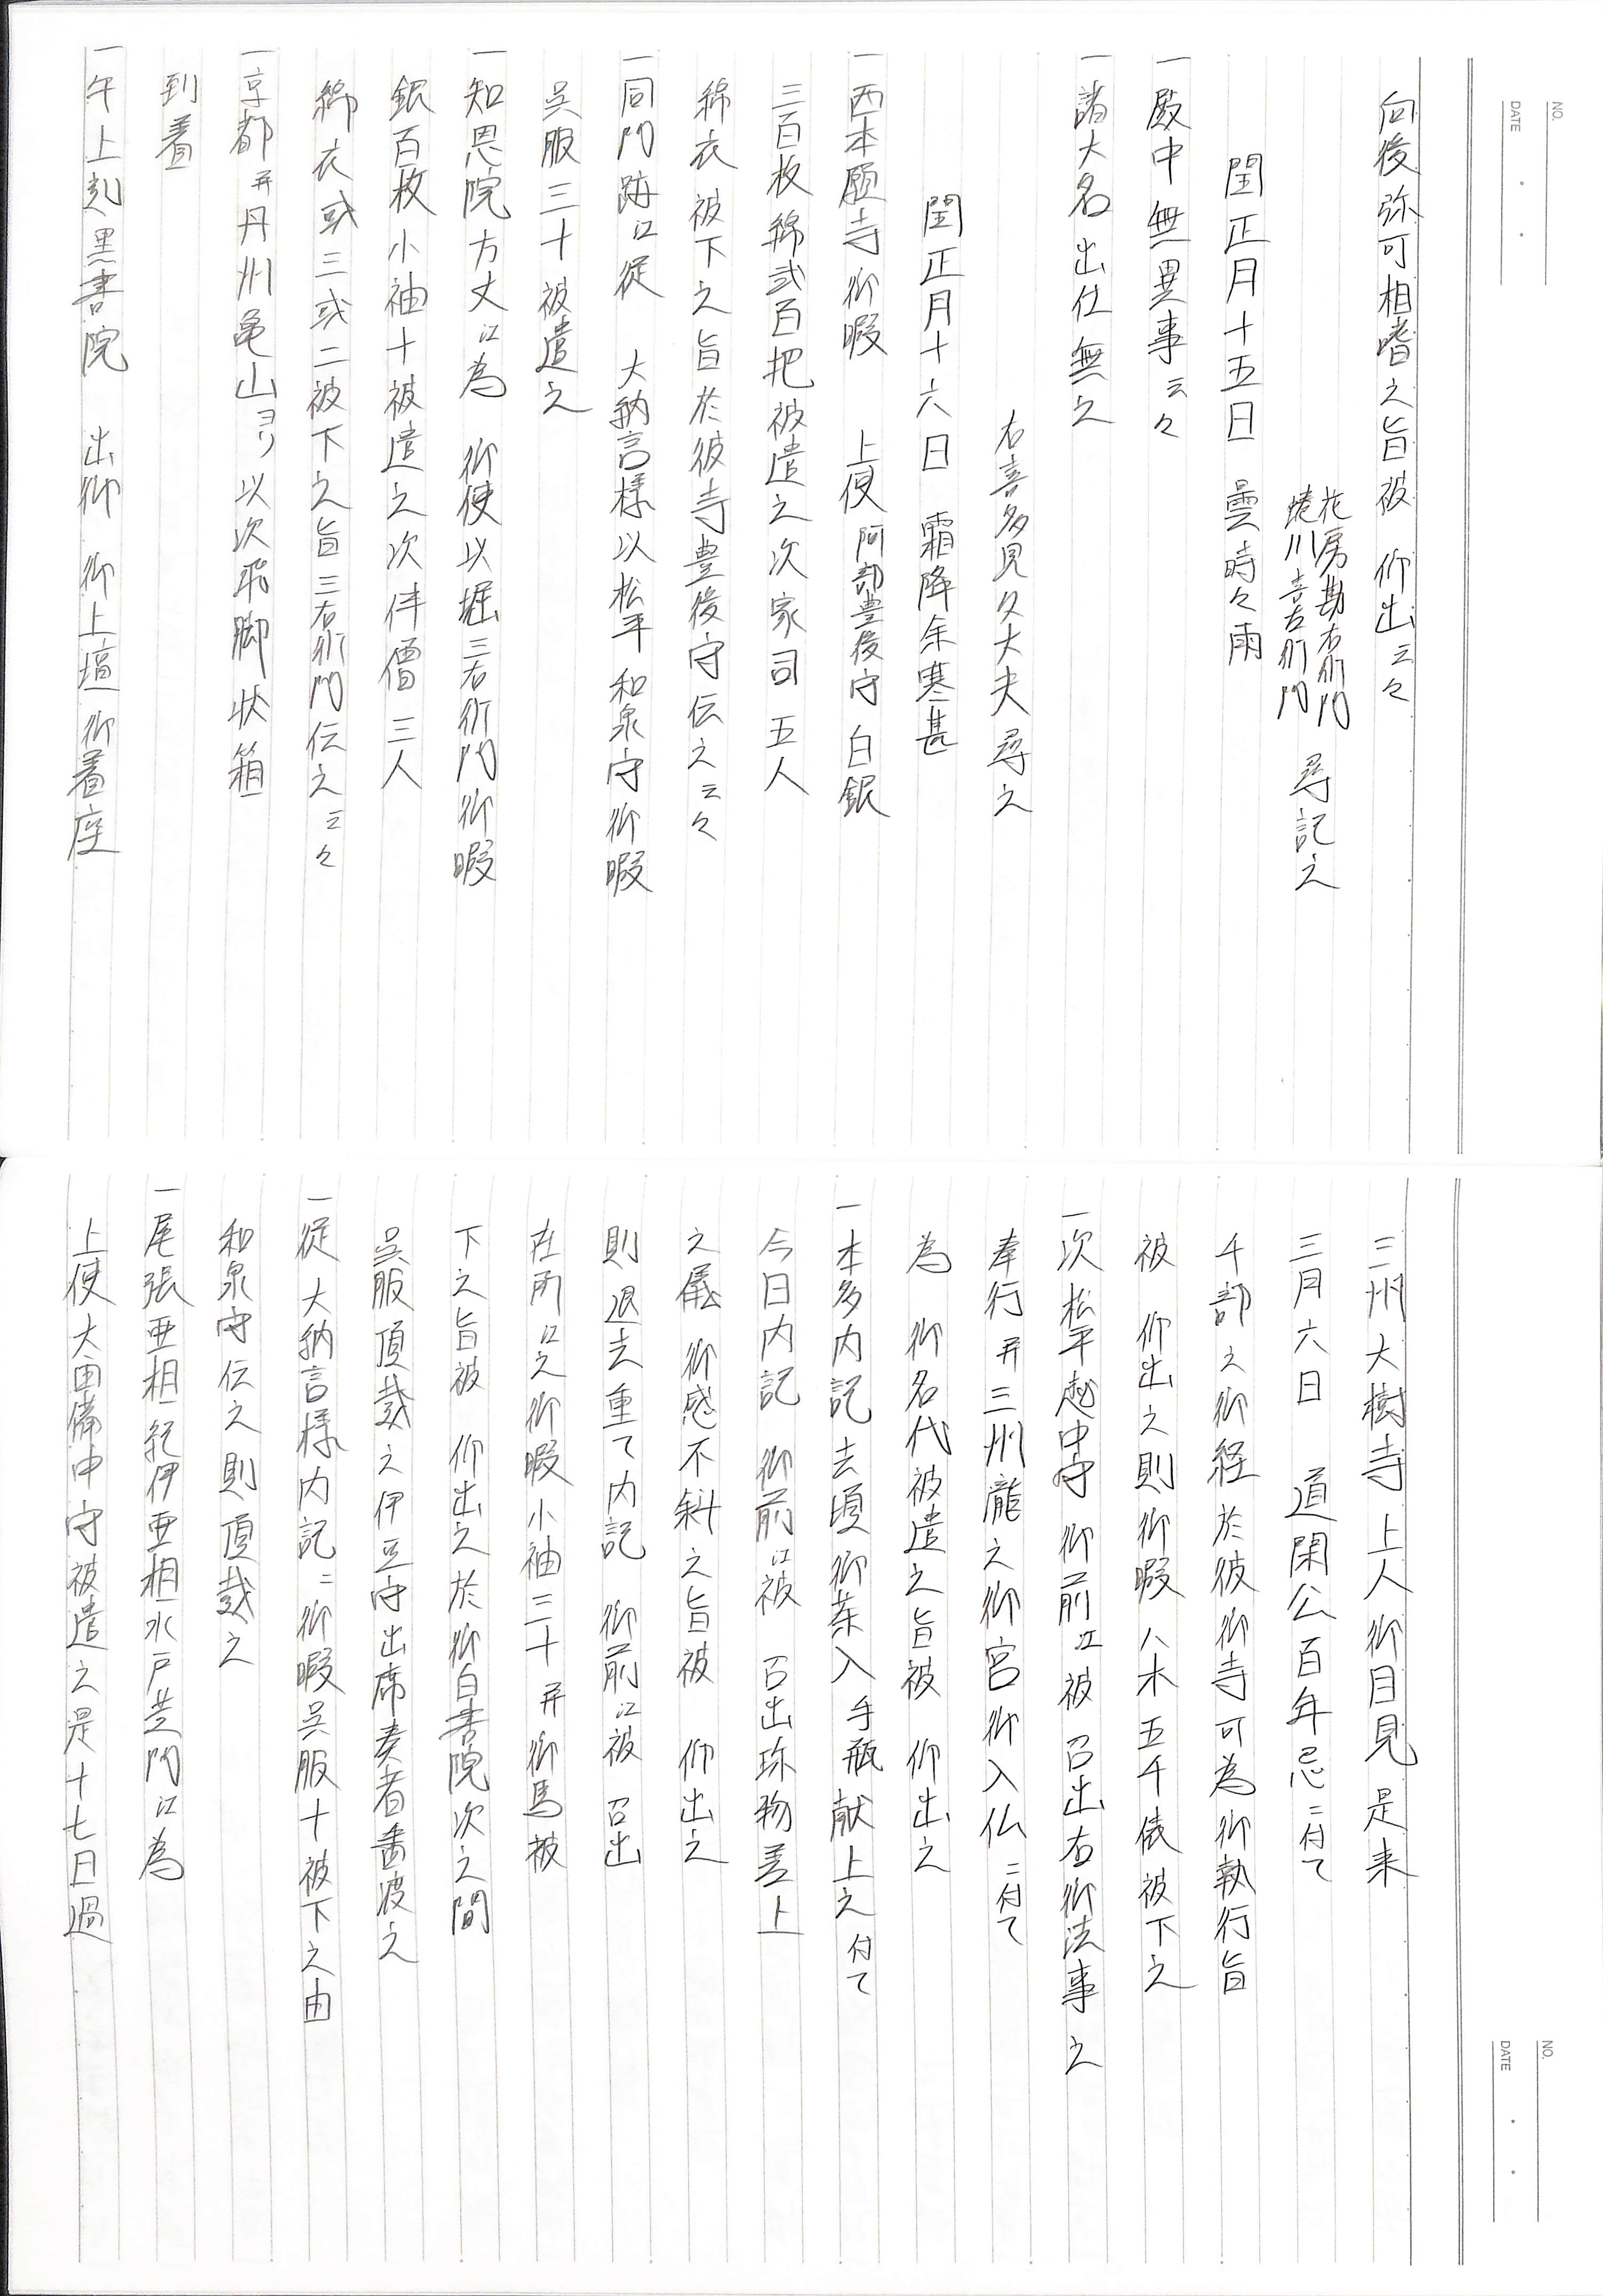 NO.
DATE
向後弥可相嗜之旨被　仰出云々
花房勘右衛門
蜷川喜左衛門　尋記之
閏正月十五日　曇時々雨
一殿中無異事云々
一諸大名出仕無之
右喜多見久大夫尋之
閏正月十六日　霜降余寒甚
一西本願寺御暇　上使阿部豊後守白銀
三百枚綿弐百把被遣之次家司五人
綿衣被下之旨於彼寺豊後守伝之云々
一同門跡江従　大納言様以松平和泉守御暇
呉服三十被遣之
一知恩院方丈江為　御使以堀三右衛門御暇
銀百枚小袖十被遣之次伴僧三人
綿衣或三或二被下之旨三右衛門伝之云々
一京都并丹州亀山ヨリ以次飛脚状箱
到着
一午上刻黒書院　出御　御上壇御着座
NO.
DATE
三州大樹寺上人御目見是来
三月六日　道閑公百年忌ニ付て
千部之御経於彼御寺可為御執行旨
被　仰出之則御暇八木五千俵被下之
一次松平越中守　御前江被　召出右御法事之
奉行并三州瀧之御宮御入仏ニ付て
為　御名代被遣之旨被　仰出之
一本多内記去頃御茶入手瓶献上之付て
今日内記　御前江被　召出珍物差上
之儀　御感不斜之旨被　仰出之
則退去重て内記　御前江被　召出
在所江之御暇小袖三十并御馬被
下之旨被　仰出之於御白書院次之間
呉服頂戴之伊豆守出席奏者番渡之
一従　大納言様内記ニ御暇呉服十被下之由
和泉守伝之則頂戴之
一尾張亜相紀伊亜相水戸黄門江為
上使太田備中守被遣之是十七日過